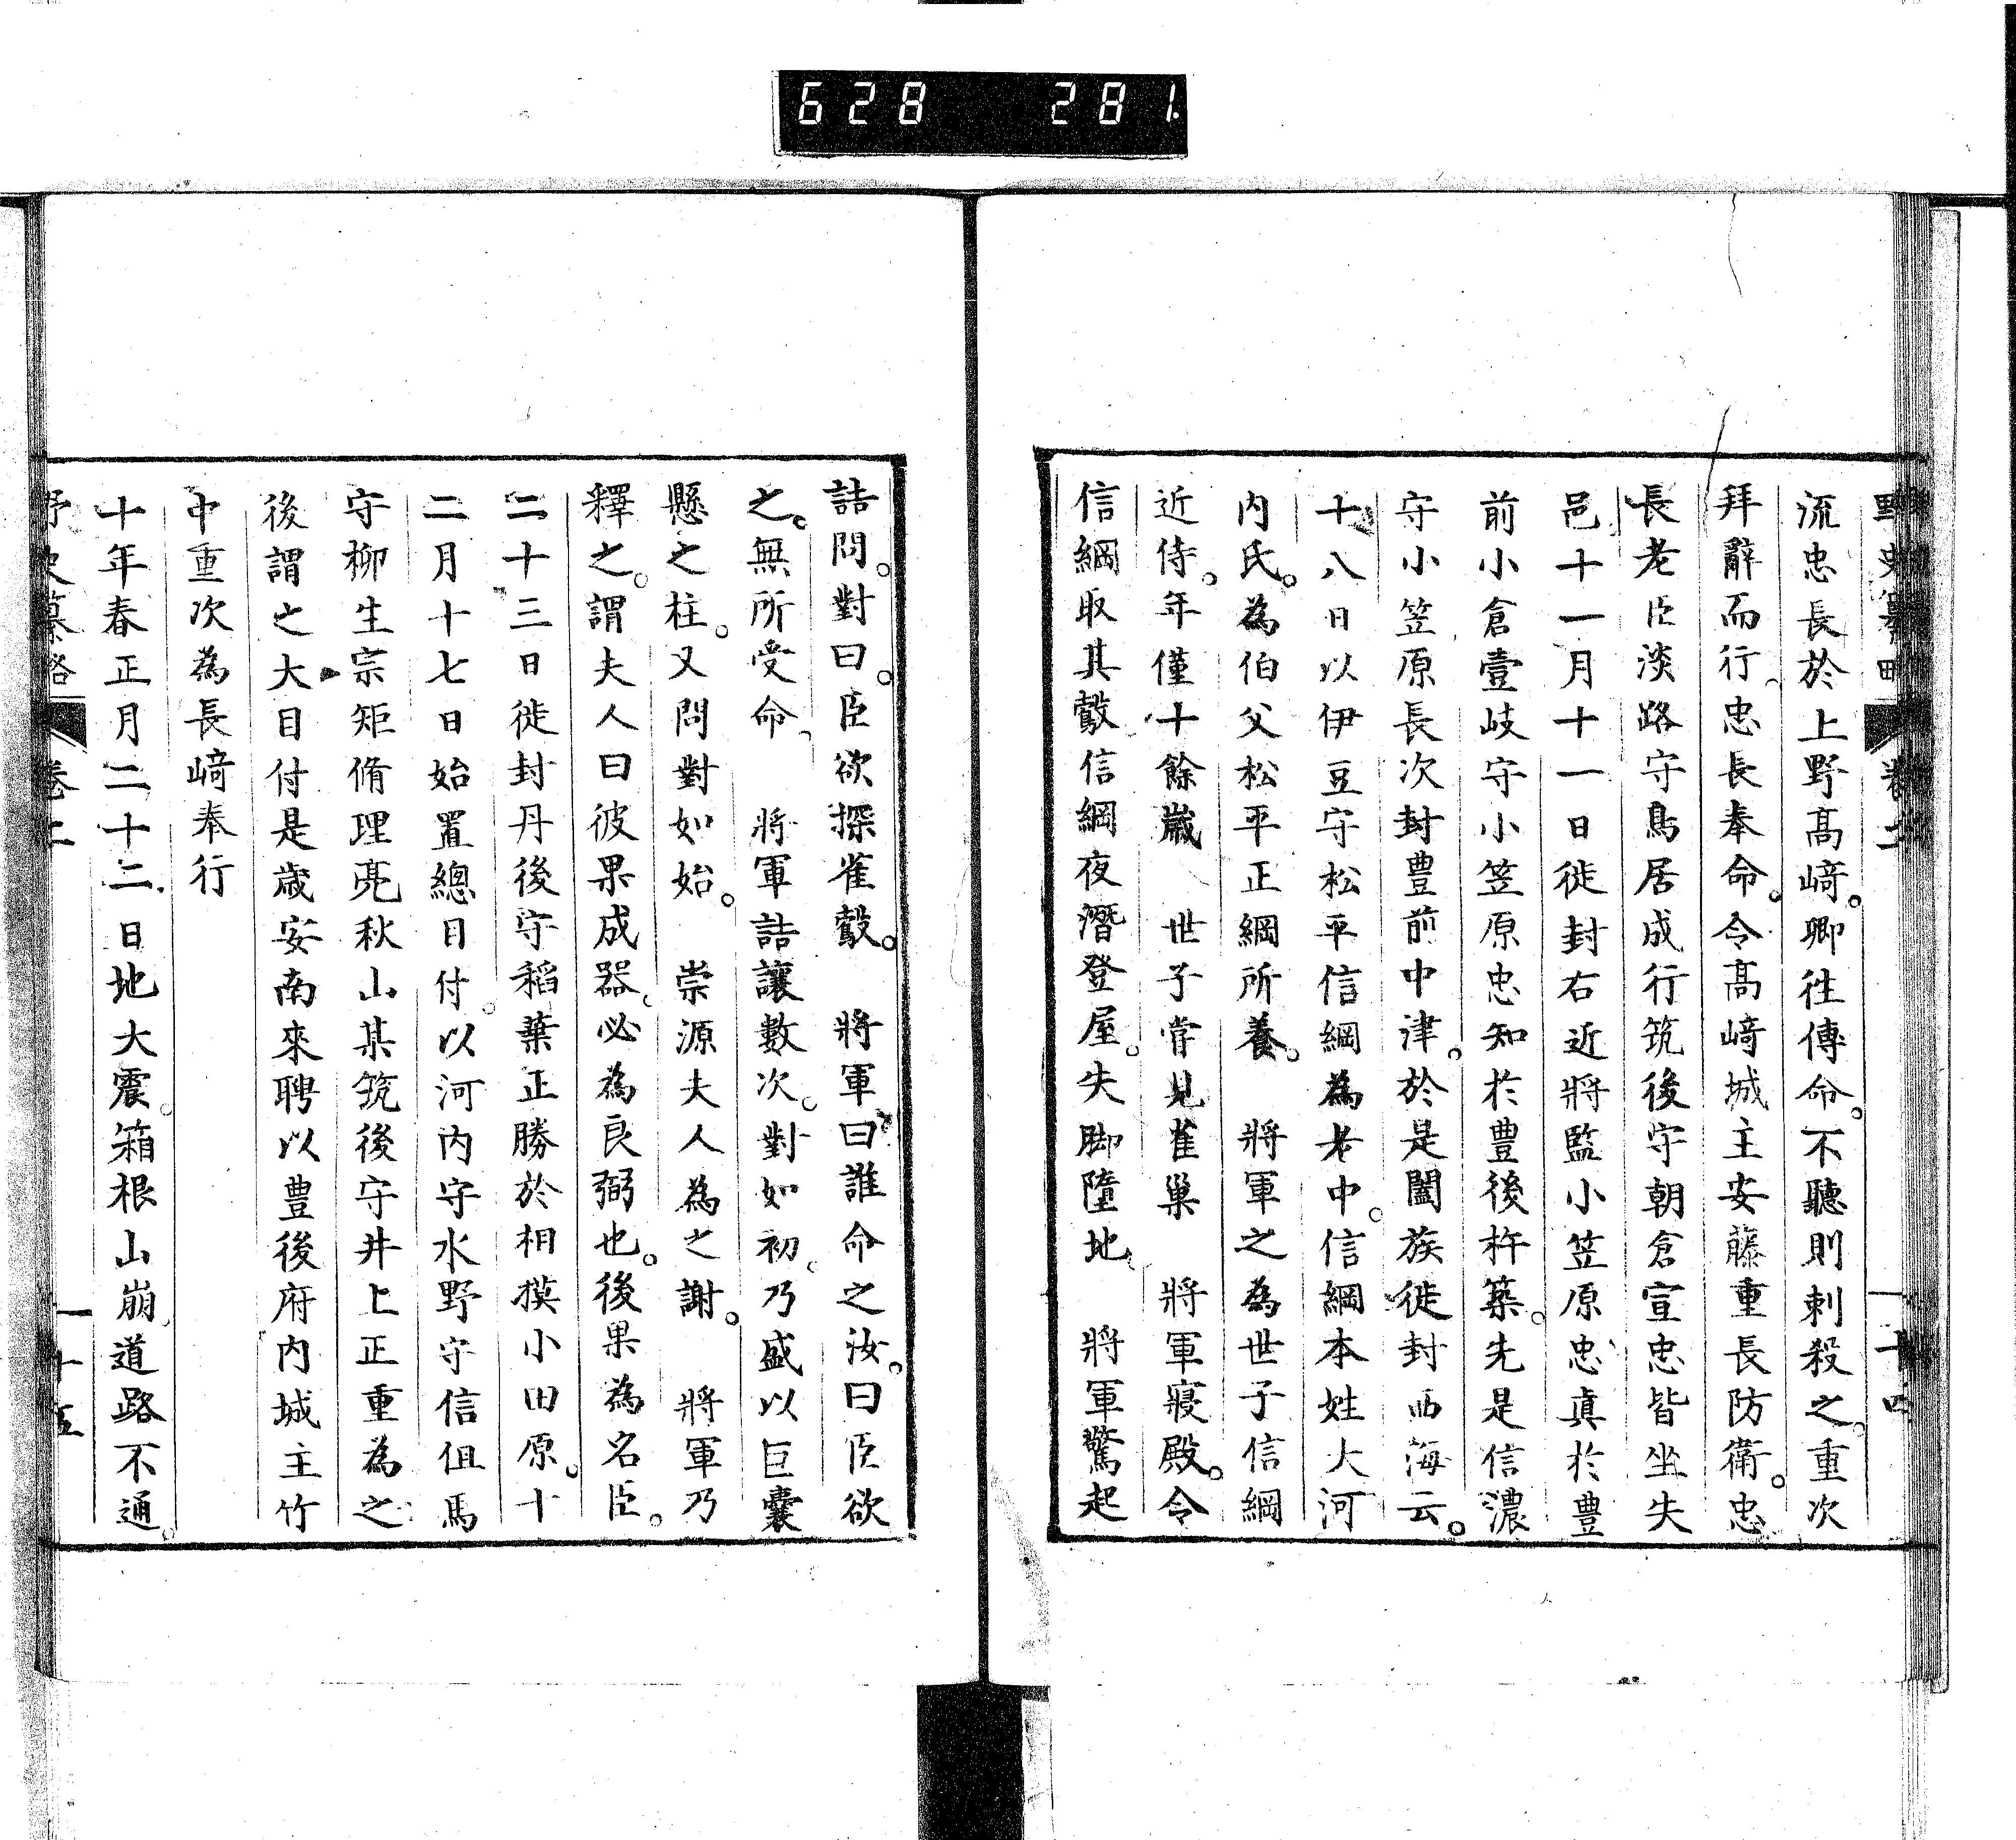 628 281
野史纂略
卷上
十四
流忠長於上野髙﨑。卿徃傳命。不聽則刺殺之。重次
拜辭而行、忠長奉命。令髙﨑城主安藤重長防衛。忠
長老臣淡路守鳥居成行筑後守朝倉宣忠皆坐失
邑十一月十一日徙封右近將監小笠原忠眞於豊
前小倉壹岐守小笠原忠知於豊後杵築。先是信濃
守小笠原長次封豊前中津。於是闔族徙封西海云。
十八日以伊豆守松平信綱為老中。信綱本姓大河
内氏。為伯父松平正綱所養。 將軍之為世子信綱
近侍。年僅十餘歳 世子甞見雀巢 將軍寢殿。令
信綱取其鷇信綱夜潛登屋。失脚墮地、 將軍驚起
詰問。對曰。臣欲探雀鷇。 將軍曰誰命之汝。曰臣欲
之。無所受命、 將軍詰讓數次。對如初。乃盛以巨囊
懸之柱。又問對如始。 崇源夫人為之謝。 將軍乃
釋之。謂夫人曰彼果成器。必為良弼也。後果為名臣。
二十三日徙封丹後守稻葉正勝於相摸小田原。十
二月十七日始置總目付。以河内守水野守信但馬
守柳生宗矩脩理亮秋山某筑後守井上正重為之
後謂之大目付是歳安南來聘以豊後府内城主竹
中重次為長﨑奉行
十年春正月二十二日地大震。箱根山崩、道路不通。
野史纂略
卷上
十五